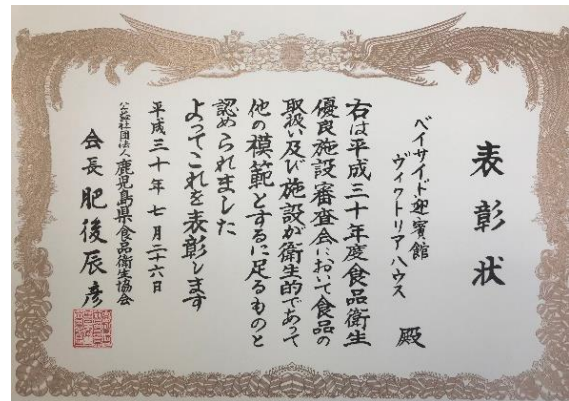 表彰状
ベイサイド迎賓館
ヴィクトリアハウス 殿
右は平成三十年度食品衛生
優良施設審査会において食品の
取扱い及び施設が衛生的であって
他の模範とするに足るものと
認められました
よってこれを表彰します
平成三十年七月二十六日
公益社団法人鹿児島県食品衛生協会
会長 肥後辰彦